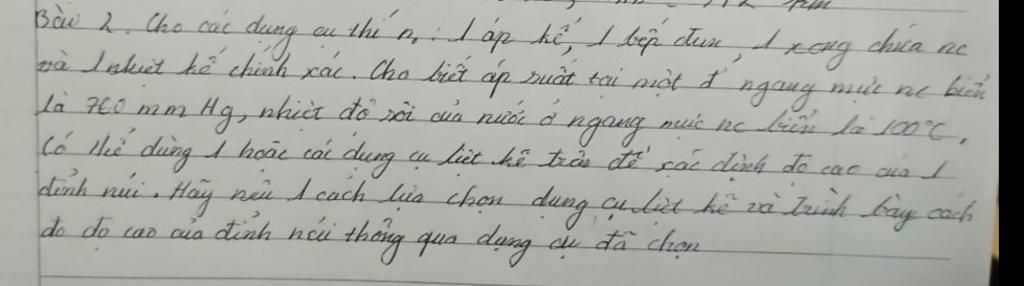 Bài 2. Cho các dụng cụ thí n. : 1 áp kế, 1 bếp đun, 1 xong chứa nc
và 1 nhiệt kế chính xác. Cho biết áp suất tại một đ' ngang mức nc biển
là 760 mm Hg, nhiệt độ sôi của nước ở ngang mức nc biển là 100°C.
Có thể dùng 1 hoặc các dụng cụ liệt kê trên để xác định độ cao của 1
đỉnh núi. Hãy nêu 1 cách lựa chọn dụng cụ liệt kê và trình bày cách
đo độ cao của đỉnh núi thông qua dụng cụ đã chọn